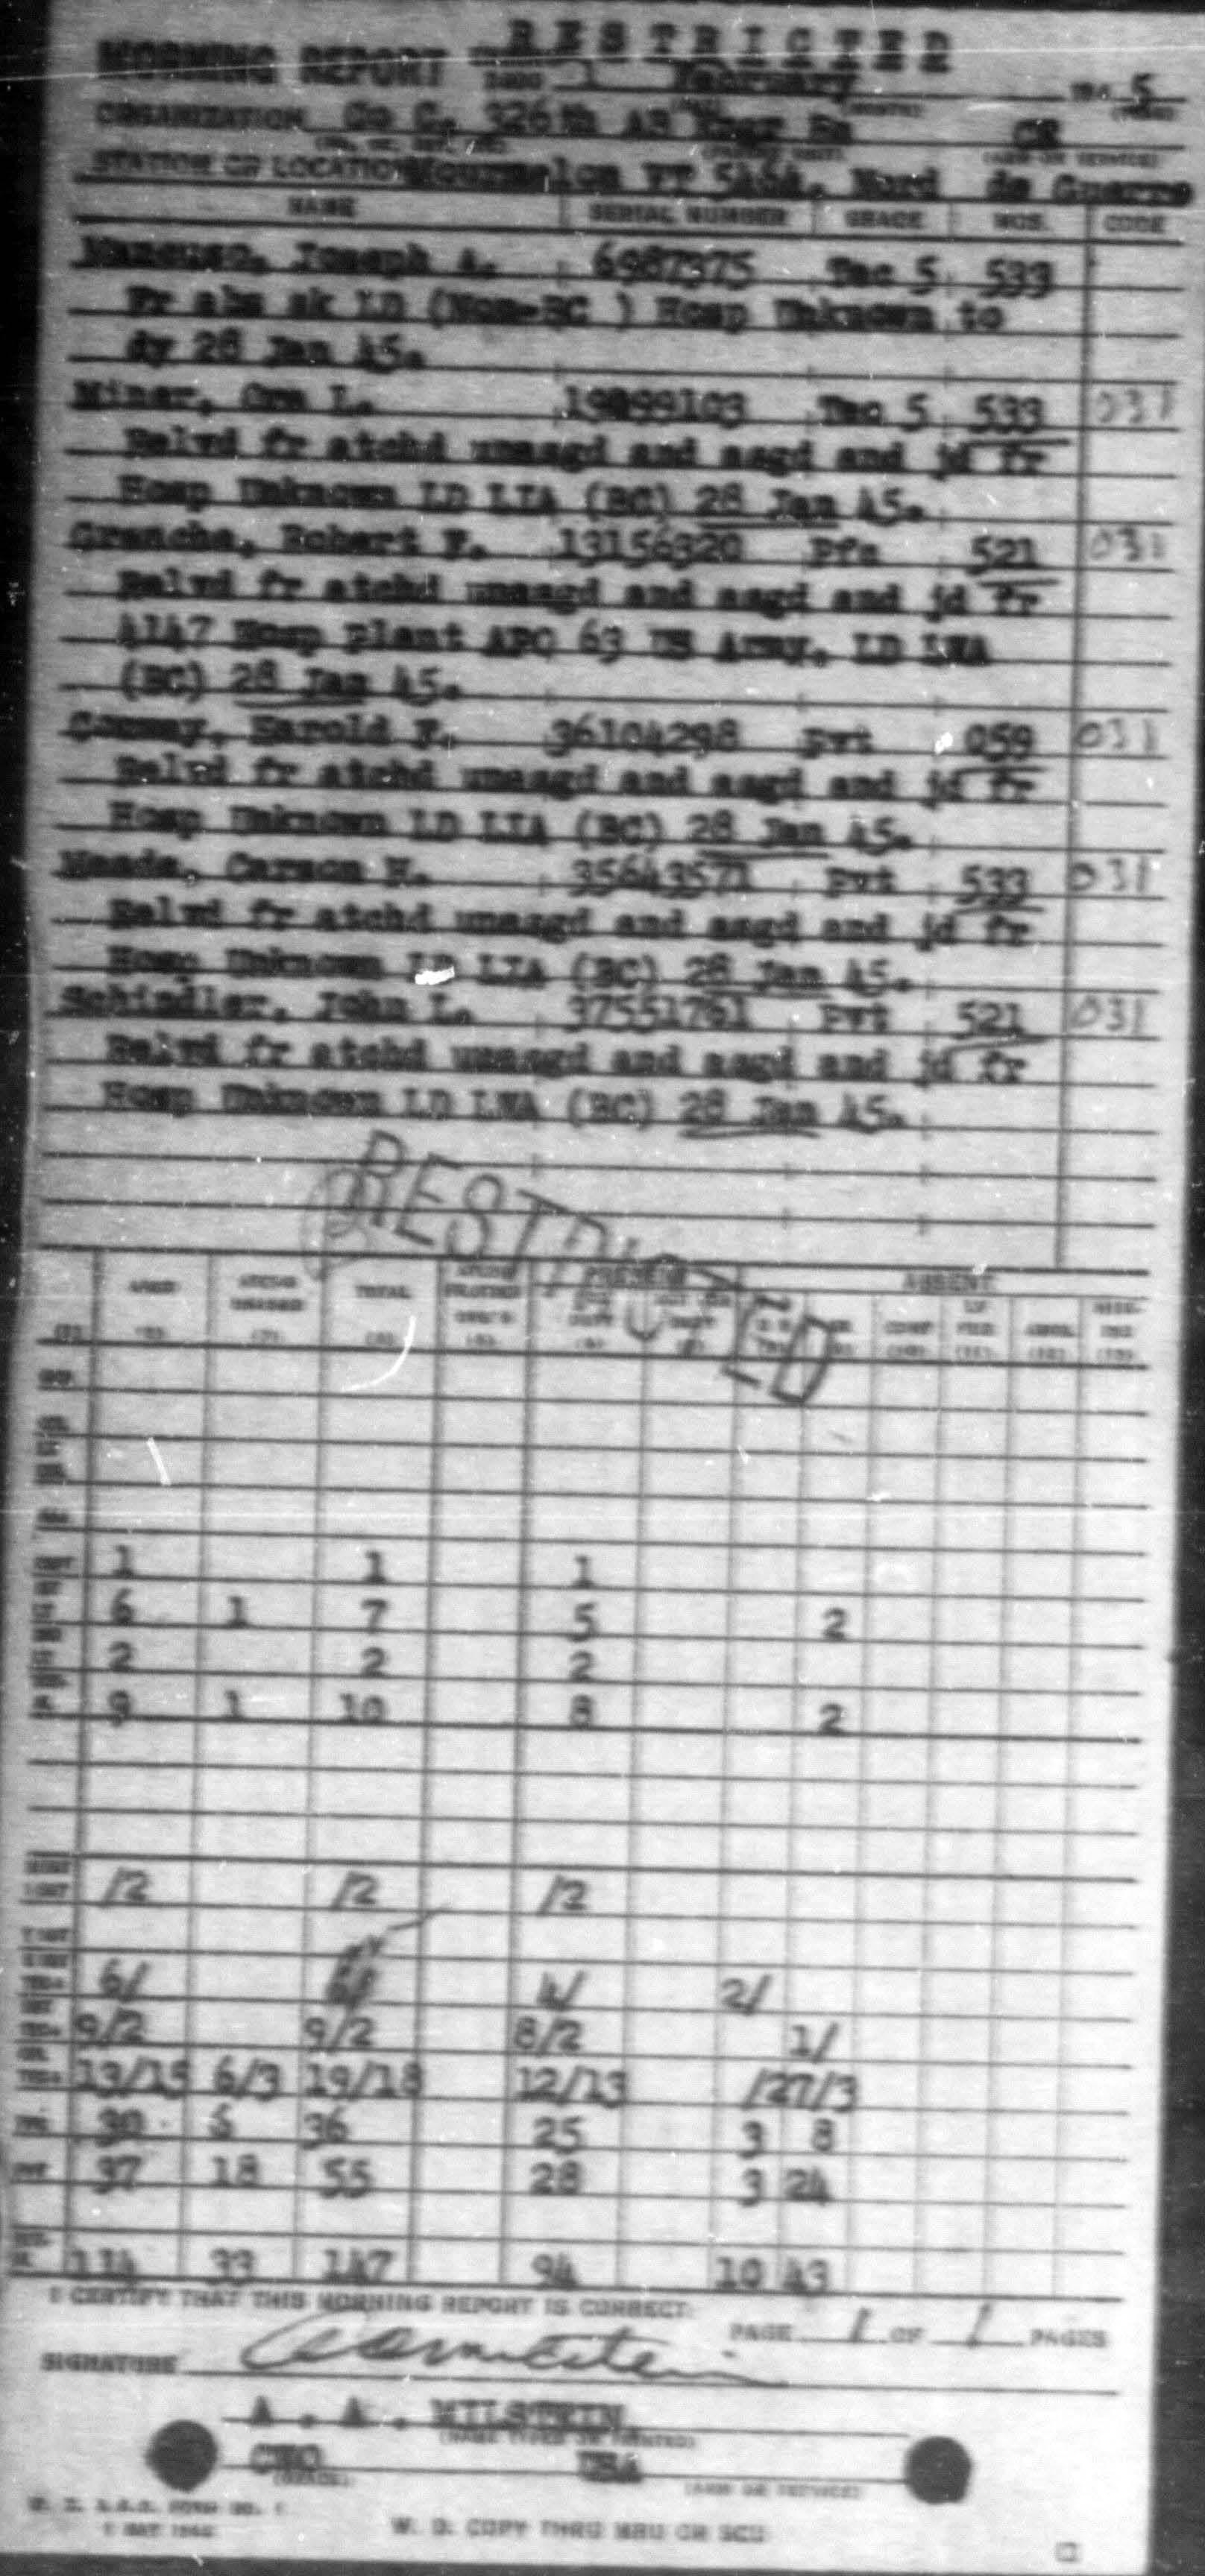 RESTRICTED
MORNING REPORT ENDED 1 February 194 5
ORGANIZATION Co C, 326th AB Engr Bn CE
STATION OR LOCATION Mourmelon VT 5464, Nord de Guerre
NAME SERIAL NUMBER GRADE MOS. CODE
Joseph A. 6987975 Tec 5 533
Fr abs sk LD (Non-BC ) Hosp Unknown to
dy 28 Jan 45.
Miner, Orm L. 19099103 Tec 5 533 031
Relvd fr atchd unasgd and asgd and jd fr
Hosp Unknown LD LIA (BC) 28 Jan 45.
Robert F. 13156320 Pfc 521 031
Relvd fr atchd unasgd and asgd and jd fr
4147 Hosp Plant APO 63 US Army. LD LWA
(BC) 28 Jan 45.
Harold F. 36104298 Pvt 059 031
Relvd fr atchd unasgd and asgd and jd fr
Hosp Unknown LD LIA (BC) 28 Jan 45.
Meade, Carson H. 35643571 Pvt 533 031
Relvd fr atchd unasgd and asgd and jd fr
Hosp Unknown LD LIA (BC) 28 Jan 45.
Schindler, John L. 37551761 Pvt 521 031
Relvd fr atchd unasgd and asgd and jd fr
Hosp Unknown LD LWA (BC) 28 Jan 45.
RESTRICTED
PRESENT ABSENT
ASGD TOTAL
CAPT 1 1 1
6 1 7 5 2
2 2 2
9 1 10 8 2
/2 /2 /2
6/ 4/ 2/
9/2 9/2 8/2 1/
13/15 6/3 19/18 12/13 /2 7/3
30 6 36 25 3 8
PVT 37 18 55 28 3 24
114 33 147 94 10 43
I CERTIFY THAT THIS MORNING REPORT IS CORRECT:
PAGE 1 OF 1 PAGES
SIGNATURE
A. A. MILSTEIN
(NAME TYPED OR PRINTED)
CWO USA
(GRADE) (ARM OR SERVICE)
W. D. A.G.O. FORM NO. 1
1 MAY 1944
W. D. COPY THRU MRU OR SCU